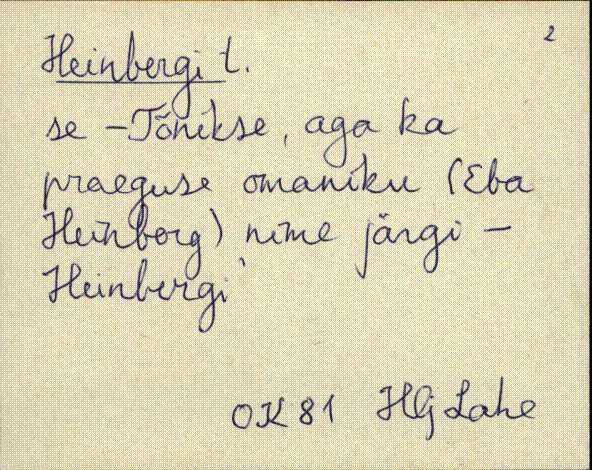 2
Heinbergi t.
se – Tõnikse, aga ka
praeguse omaniku (Eba
Heinberg) nime järgi –
Heinbergi
OK 81 Hlj Lahe